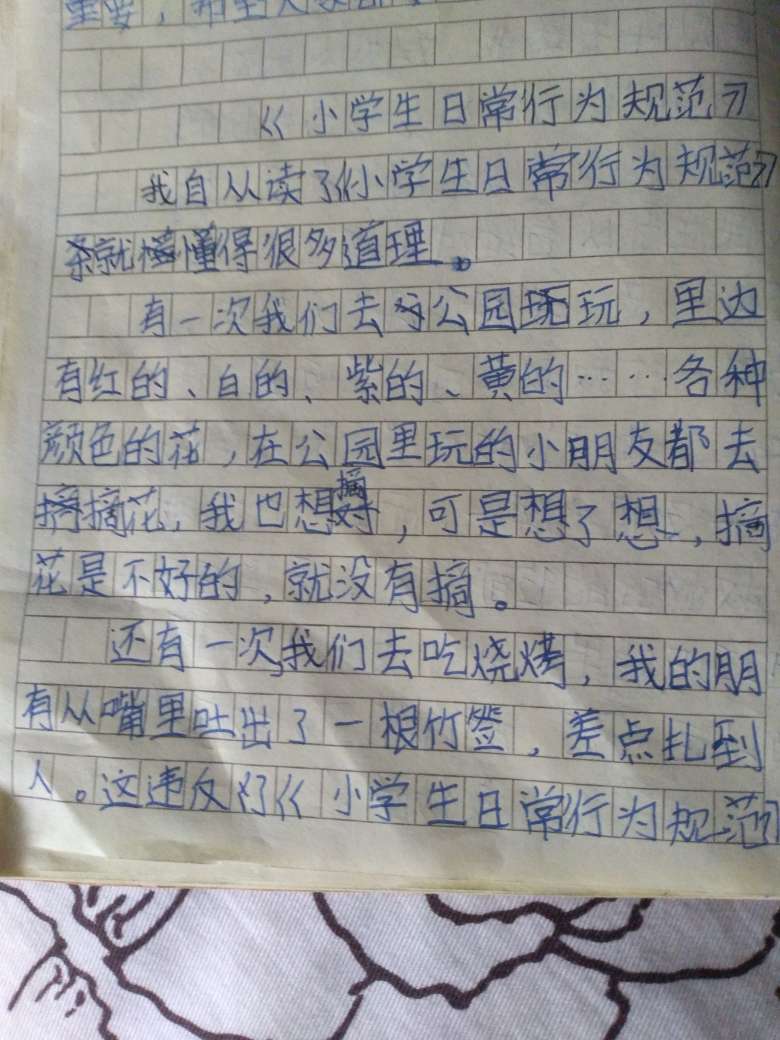 重要，希望大家都
《小学生日常行为规范》
我自从读了《小学生日常行为规范》
就懂得很多道理。
有一次我们去公园玩玩，里边
有红的、白的、紫的、黄的……各种
颜色的花，在公园里玩的小朋友都去
摘摘花，我也想摘，可是想了想，摘
花是不好的，就没有摘。
还有一次，我们去吃烧烤，我的朋
有从嘴里吐出了一根竹签，差点扎到
人。这违反了《小学生日常行为规范》